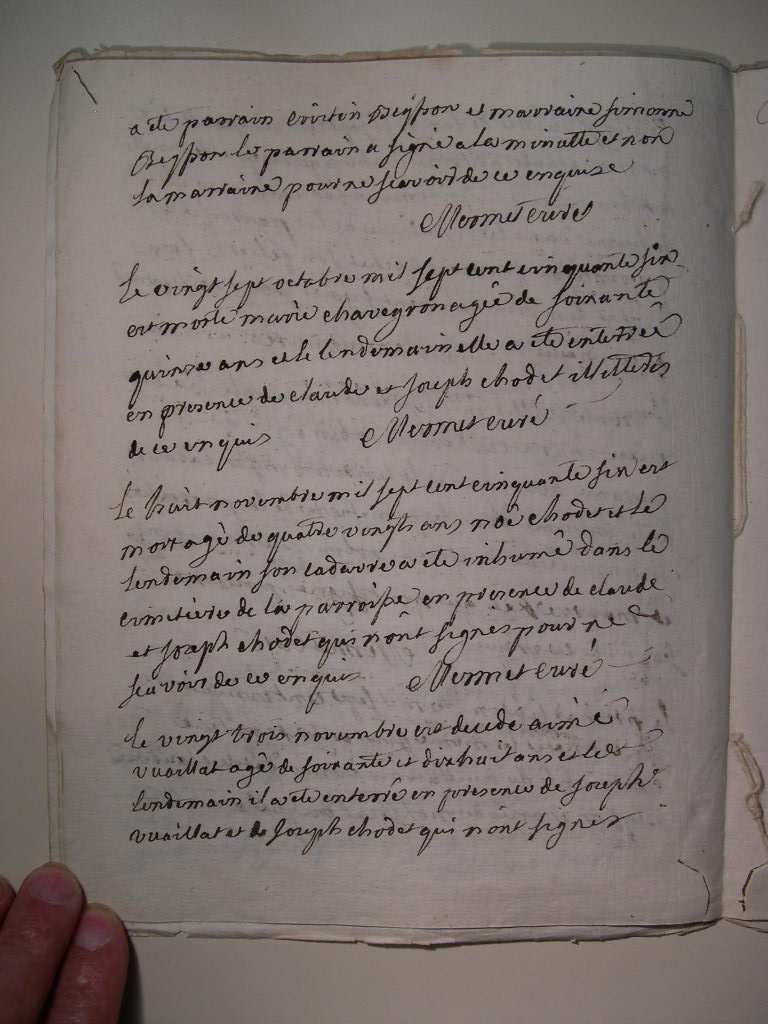 a ete parrain Beysson et marraine simonne
Beysson le parrain a signé a la minutte et non
la marraine pour ne scavoir de ce enquise
Mermet curé
le vingt sept octobre mil sept cent cinquante six
est morte marie chavegron agêe de soixante
quinze ans et le lendemain elle a ete enterreê
en presence de claude et joseph chodet illetterés
de ce enquis Mermet curé
le huit novembre mil sept cent cinquante six est
mort agê de quatre vingts ans noê chodet et le
lendemain son cadavre a ete inhumê dans le
cimetiere de la parroisse en presence de claude
et joseph chodet qui nônt signés pour ne
scavoir de ce enquis Mermet curé
le vingt trois novembre est decede aimé
vuaillat agê de soixante et dix huit ans et le
lendemain il a ete enterré en presence de joseph
vuaillat et de joseph chodet qui nônt signés